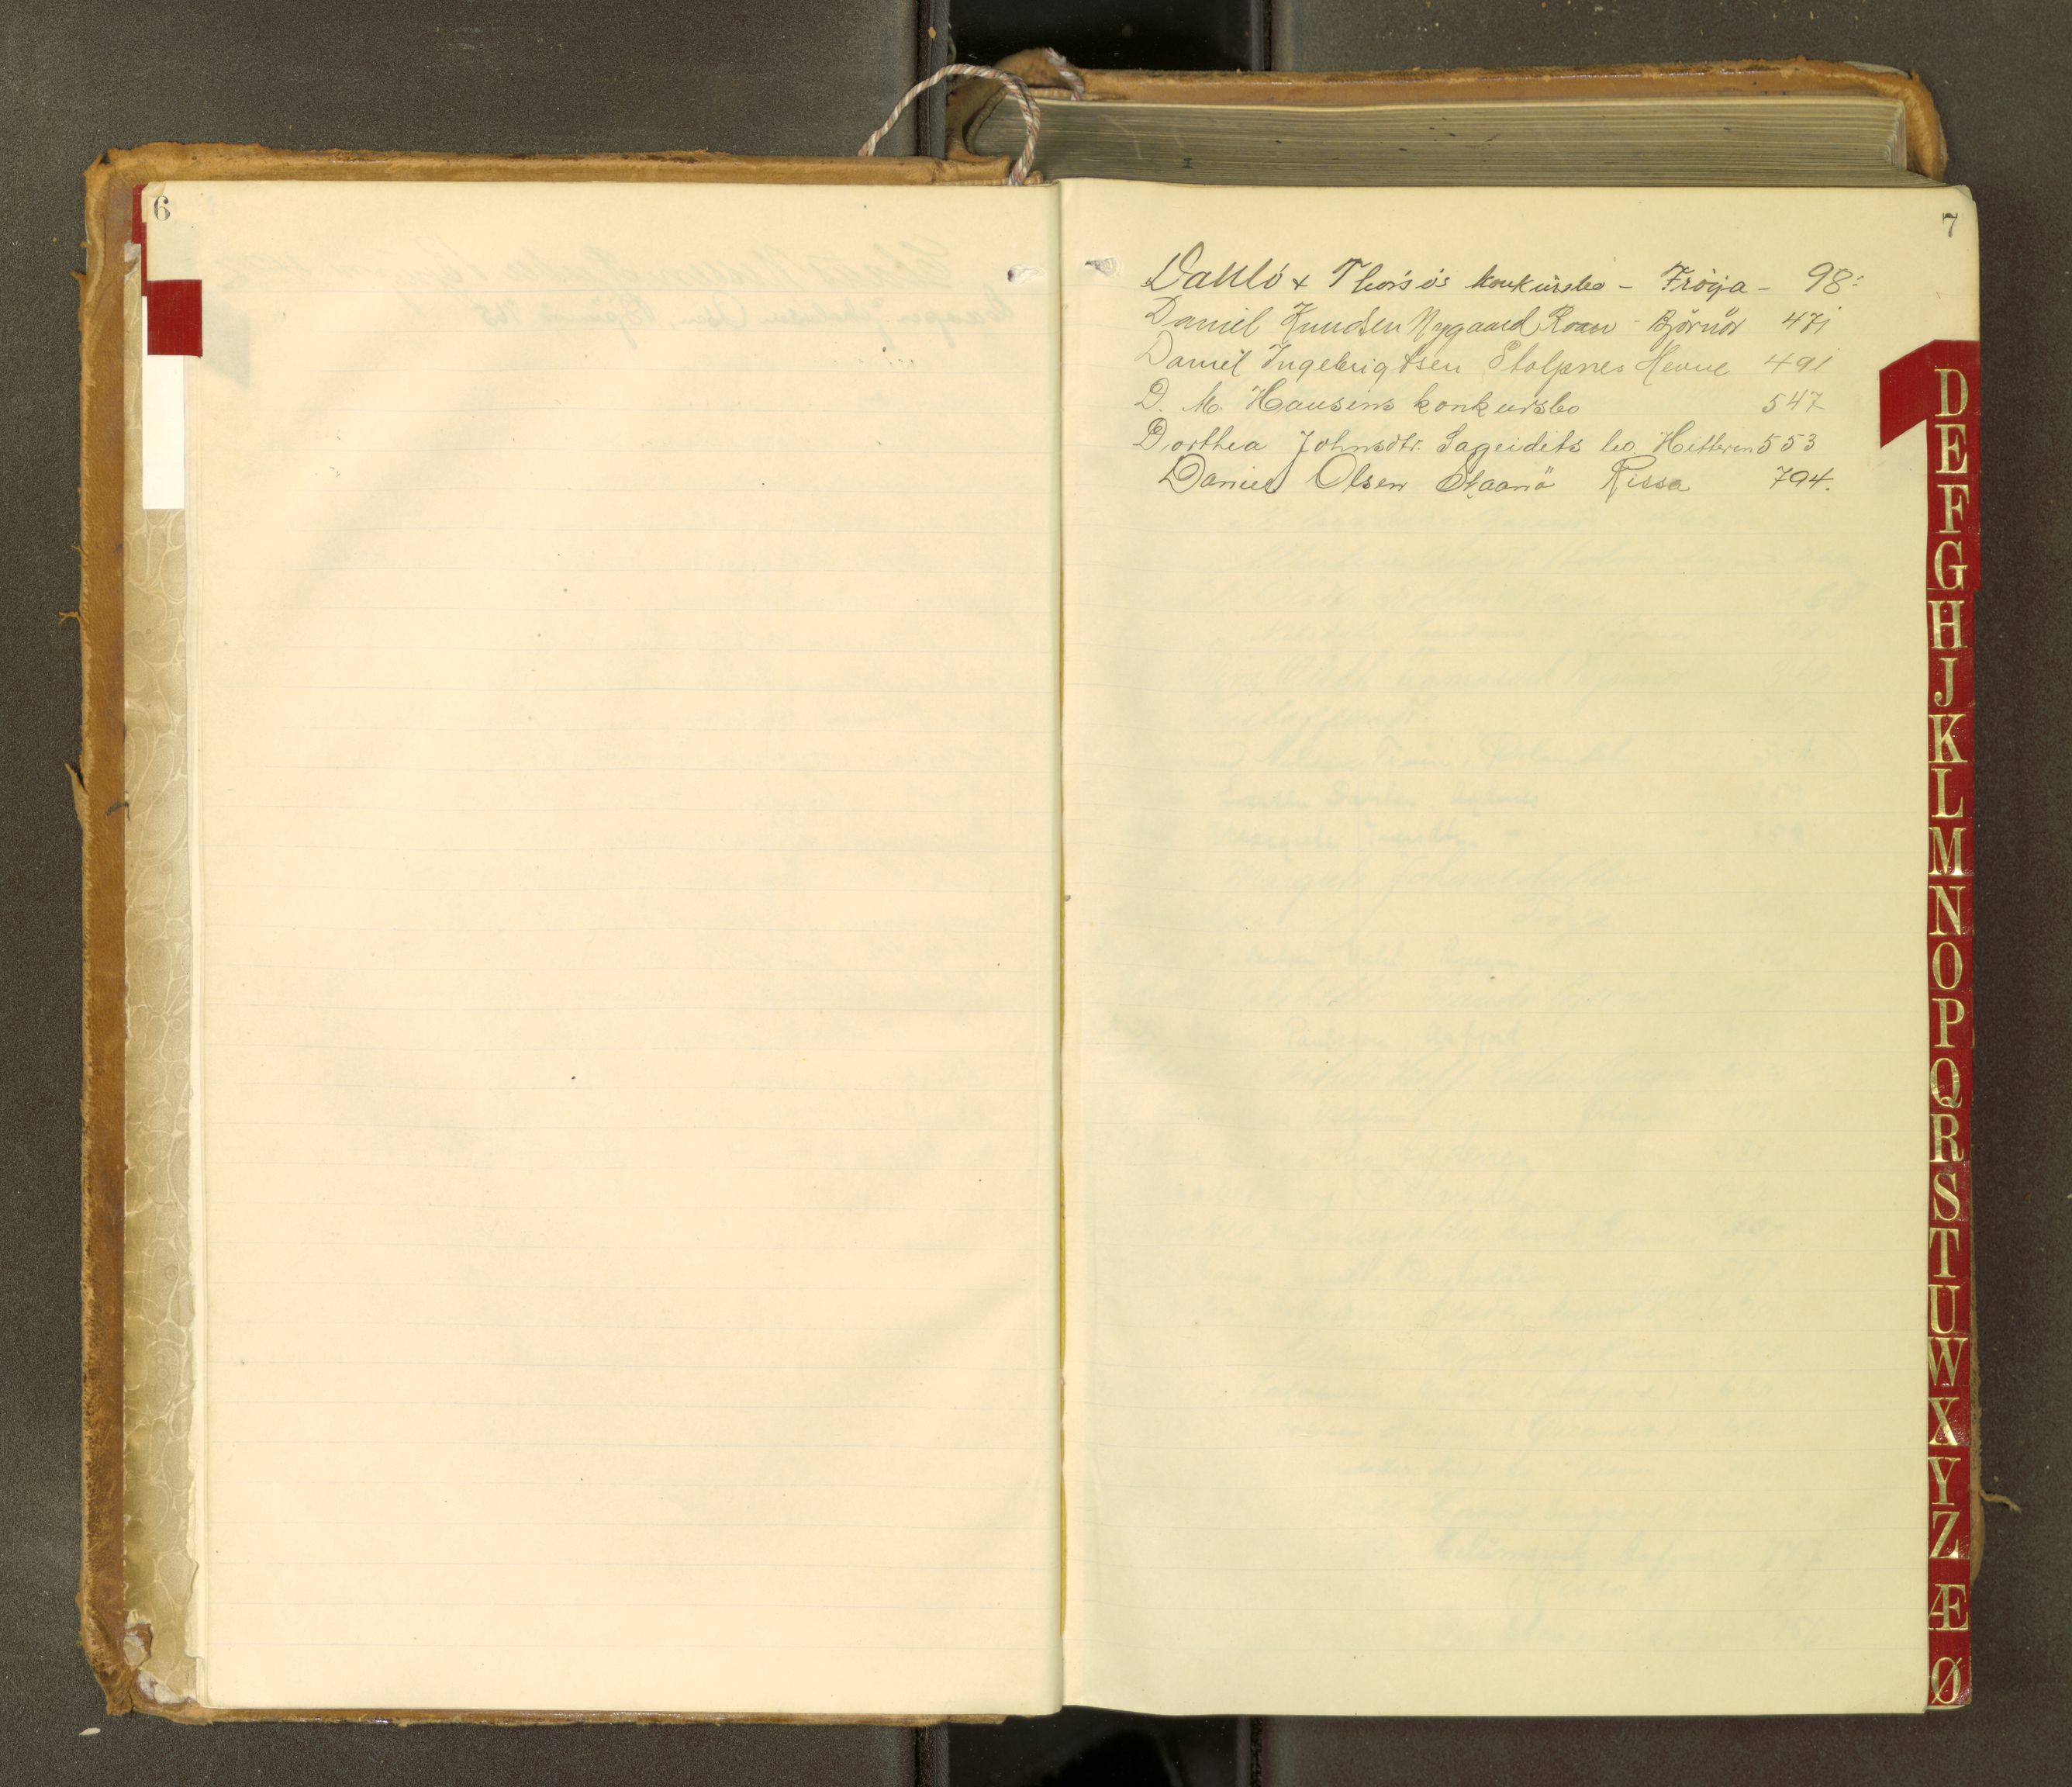 6
7
Dahlö & Thorsös konkursbo - Fröija - 98:
Daniel Knudsen Nygaard Roan - Björnör 471
Daniel Ingebrigtsen Stolpnes Hevne 491
D. M. Hansens konkursbo 547
Dorthea Johnsdtr. bo Hitteren 553
Daniel Olsen Rissa 794.
D
E
F
G
H
J
K
L
M
N
O
P
Q
R
S
T
U
W
X
Y
Z
Æ
Ø